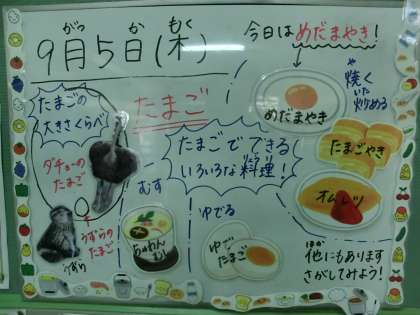 がつ か もく
9月5日(木)
今日はめだまやき!
めだまやき
や
焼く
いた
炒める
たまごやき
オムレツ
たまごの
大きさくらべ
たまご
ダチョーの
たまご
うずらの
たまご
うずら
たまごでできる
いろいろな料理!
りょうり
むす
ちゃわん
むし
ゆでる
ゆで
たまご
ほか
他にもあります
さがしてみよう!